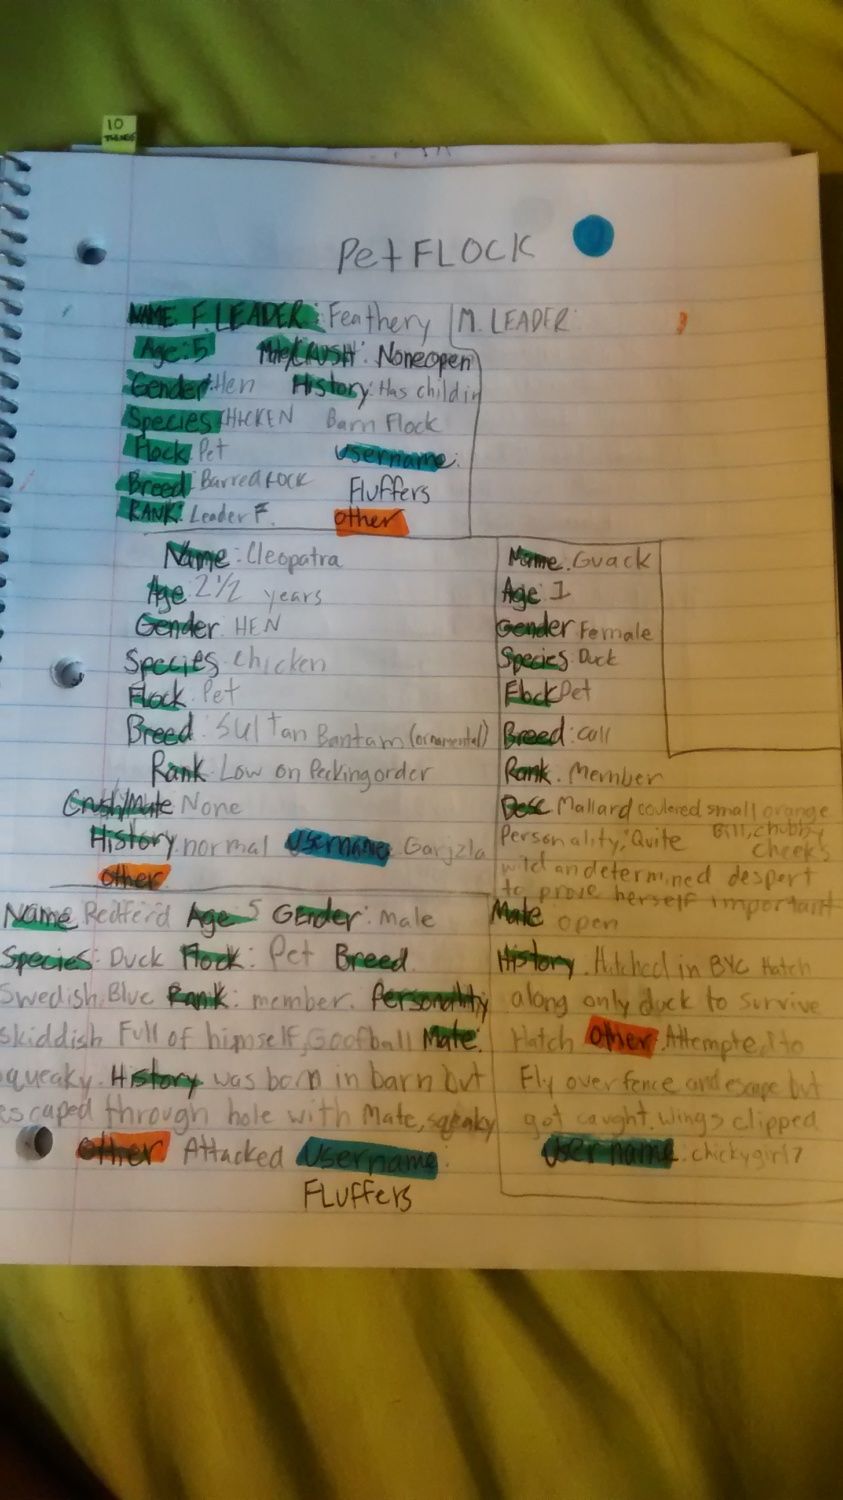 10
THINGS
Pet FLOCK
NAME F. LEADER: Feathery
Age: 5 Mate/CRUSH: None open
Gender: Hen History: Has child in
Species CHICKEN Barn Flock
Flock Pet Username:
Breed: Barred rock Fluffers
RANK: Leader F. other
M. LEADER:
Name: Cleopatra
Age: 2 1/2 years
Gender: HEN
Species: Chicken
Flock: Pet
Breed: Sultan Bantam (ornamental)
Rank: Low on Pecking order
Crush/Mate None
History normal Username: Garjzla
other
Name: Guack
Age: 1
Gender Female
Species: Duck
Flock Pet
Breed: call
Rank. Member
Desc Mallard coulered small orange
Bill, chubby
cheeks
Personality: Quite
wild an determined despert
to prove herself important
Mate open
History. Hatched in BYC Hatch
along only duck to survive
Hatch other. Attempted to
Fly over fence and escape but
got caught. wings clipped
Username. chickygirl7
Name Redferd Age: 5 Gender: male
Species: Duck Flock: Pet Breed
Swedish Blue Rank: member. Personality
skiddish Full of himself, Goofball Mate:
squeaky. History was born in barn but
escaped through hole with Mate, squeaky
other Attacked Username:
FLuffers